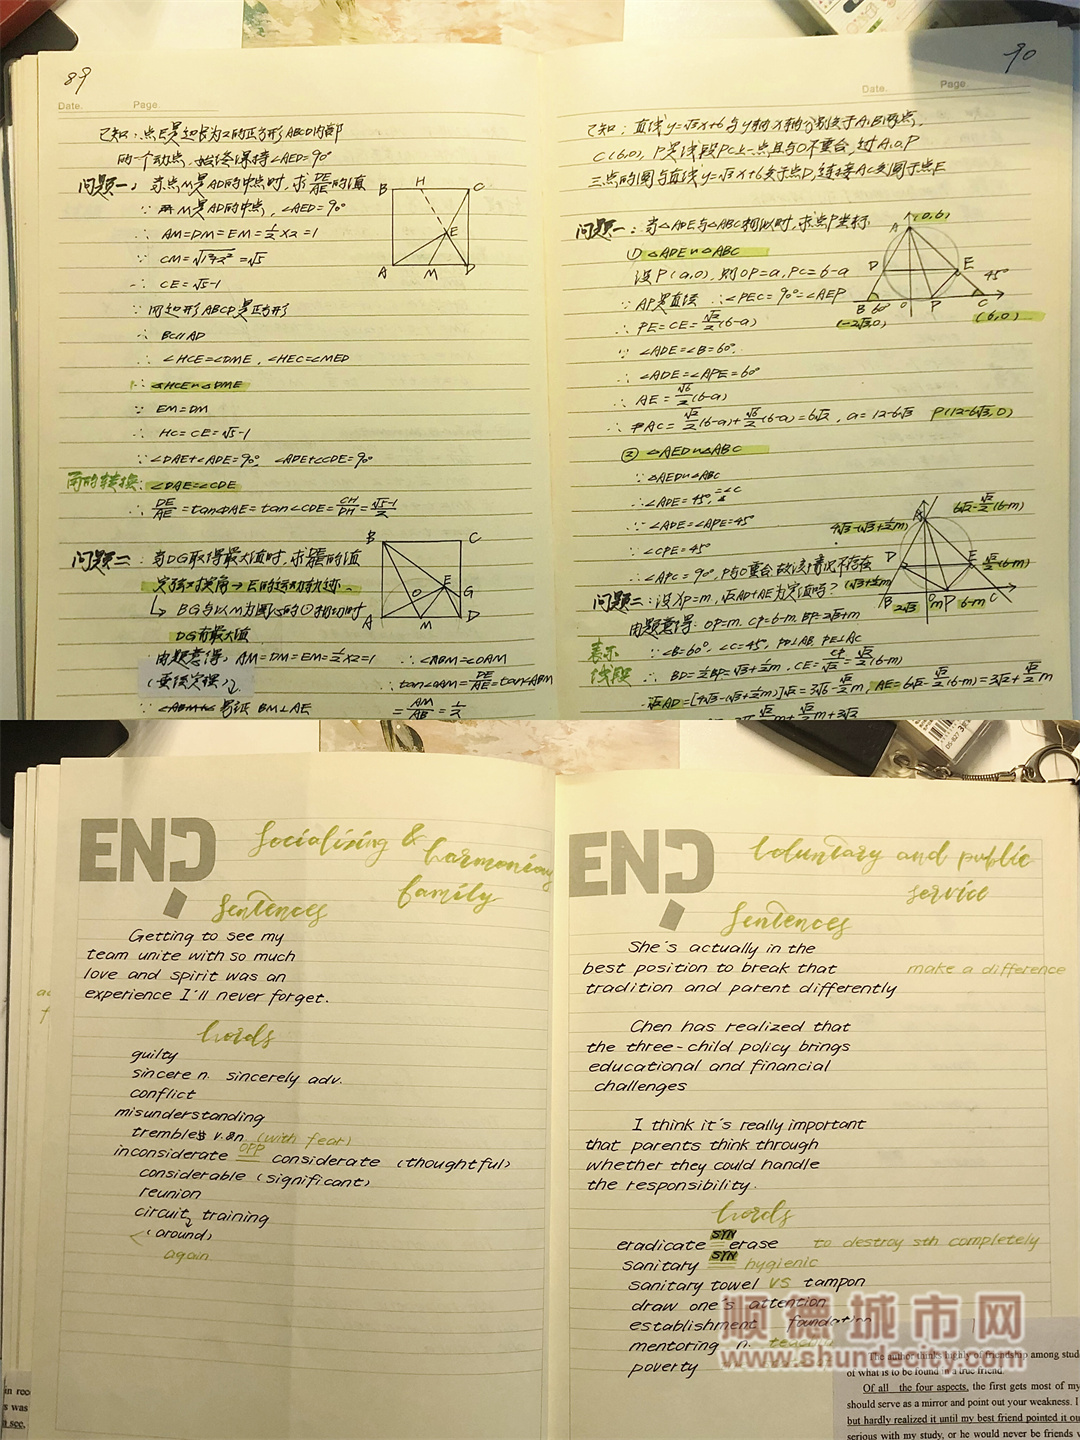 89
Date. Page.
已知：点E是边长为2的正方形ABCD内部
的一个动点，始终保持∠AED=90°
问题一：当点M是AD的中点时，求DE/AE的值
∵ M是AD的中点，∠AED=90°
∴ AM=DM=EM=½×2=1
∵ CM=√1²+2²=√5
∴ CE=√5-1
∵ 四边形ABCD是正方形
∴ BC∥AD
∴ ∠HCE=∠DME，∠HEC=∠MED
∴ △HCE∽△DME
∵ EM=DM
∴ HC=CE=√5-1
∵ ∠DAE+∠ADE=90°，∠ADE+∠CDE=90°
角的转换：∠DAE=∠CDE
∴ DE/AE=tan∠DAE=tan∠CDE=CH/DH=√5-1/2
B H C
E
A M D
问题二：当DG取得最大值时，求的值
定弦对定角→E的运动轨迹
↳ BG与以M为圆心的⊙相切时
DG有最大值
由题意得，AM=DM=EM=½×2=1
∵ 易证 BM⊥AE
∴ ∠ABM=∠DAM
∴ tan∠DAM=DE/AE=tan∠ABM
=AM/AB=½
B C
E
O G
A M D
90
Date. Page.
已知：直线y=√3x+6与y轴x轴分别交于A,B两点，
C(6,0)，P是线段OC上一点且与O不重合，过A,O,P
三点的圆与直线y=√3x+6交于点D，连接AC交圆于点E
问题一：当△ADE与△ABC相似时，求点P坐标
① △ADE∽△ABC
设P(a,0)，则OP=a，PC=6-a
∵ AP是直径 ∴∠PEC=90°=∠AEP
∴ PE=CE=√2/2(6-a)
∵ ∠ADE=∠B=60°
∴ ∠ADE=∠APE=60°
∴ AE=√6/2(6-a)
∴ AC=√2/2(6-a)+√6/2(6-a)=6√2，a=12-6√3 P(12-6√3,0)
② △AED∽△ABC
∵△AED∽△ABC
∴∠ADE=45°=∠C
∵∠ADE=∠APE=45°
∵∠CPE=45°
∴∠APC=90°，P与O重合，故该情况不存在
A (0,6)
D E 45°
B 60° O P C
(-2√3,0) (6,0)
问题二：设OP=m，√2AD+AE为定值吗？
由题意得：OP=m，CP=6-m，BP=2√3+m
表示
线段
∵∠B=60°，∠C=45°，PD⊥AB，PE⊥AC
∴ BD=½BP=√3+½m，CE=CP/√2=√2/2(6-m)
√2AD=[4√3-(√3+½m)]√2=3√6-√2/2m，AE=6√2-√2/2(6-m)=3√2+√2/2m
A
4√3-(√3+½m) 6√2-√2/2(6-m)
D E √2/2(6-m)
(√3+½m)
B 2√3 O m P 6-m C
END
Socializing & harmonious
family
Sentences
Getting to see my
team unite with so much
love and spirit was an
experience I'll never forget.
Words
guilty
sincere n. sincerely adv.
conflict
misunderstanding
tremble v.&n (with fear)
inconsiderate OPP considerate (thoughtful)
considerable (significant)
reunion
circuit training
(around)
again
END
Voluntary and public
service
Sentences
She's actually in the
best position to break that make a difference
tradition and parent differently
Chen has realized that
the three-child policy brings
educational and financial
challenges
I think it's really important
that parents think through
whether they could handle
the responsibility.
Words
eradicate SYN erase to destroy sth completely
sanitary SYN hygienic
sanitary towel VS tampon
draw one's attention
establishment foundation
mentoring n. teaching
poverty
顺德城市网
www.shundecity.com
The author thinks highly of friendship among stud
of what is to be found in a true friend.
Of all the four aspects, the first gets most of my
should serve as a mirror and point out your weakness. I
but hardly realized it until my best friend pointed it ou
serious with my study, or he would never be friends w